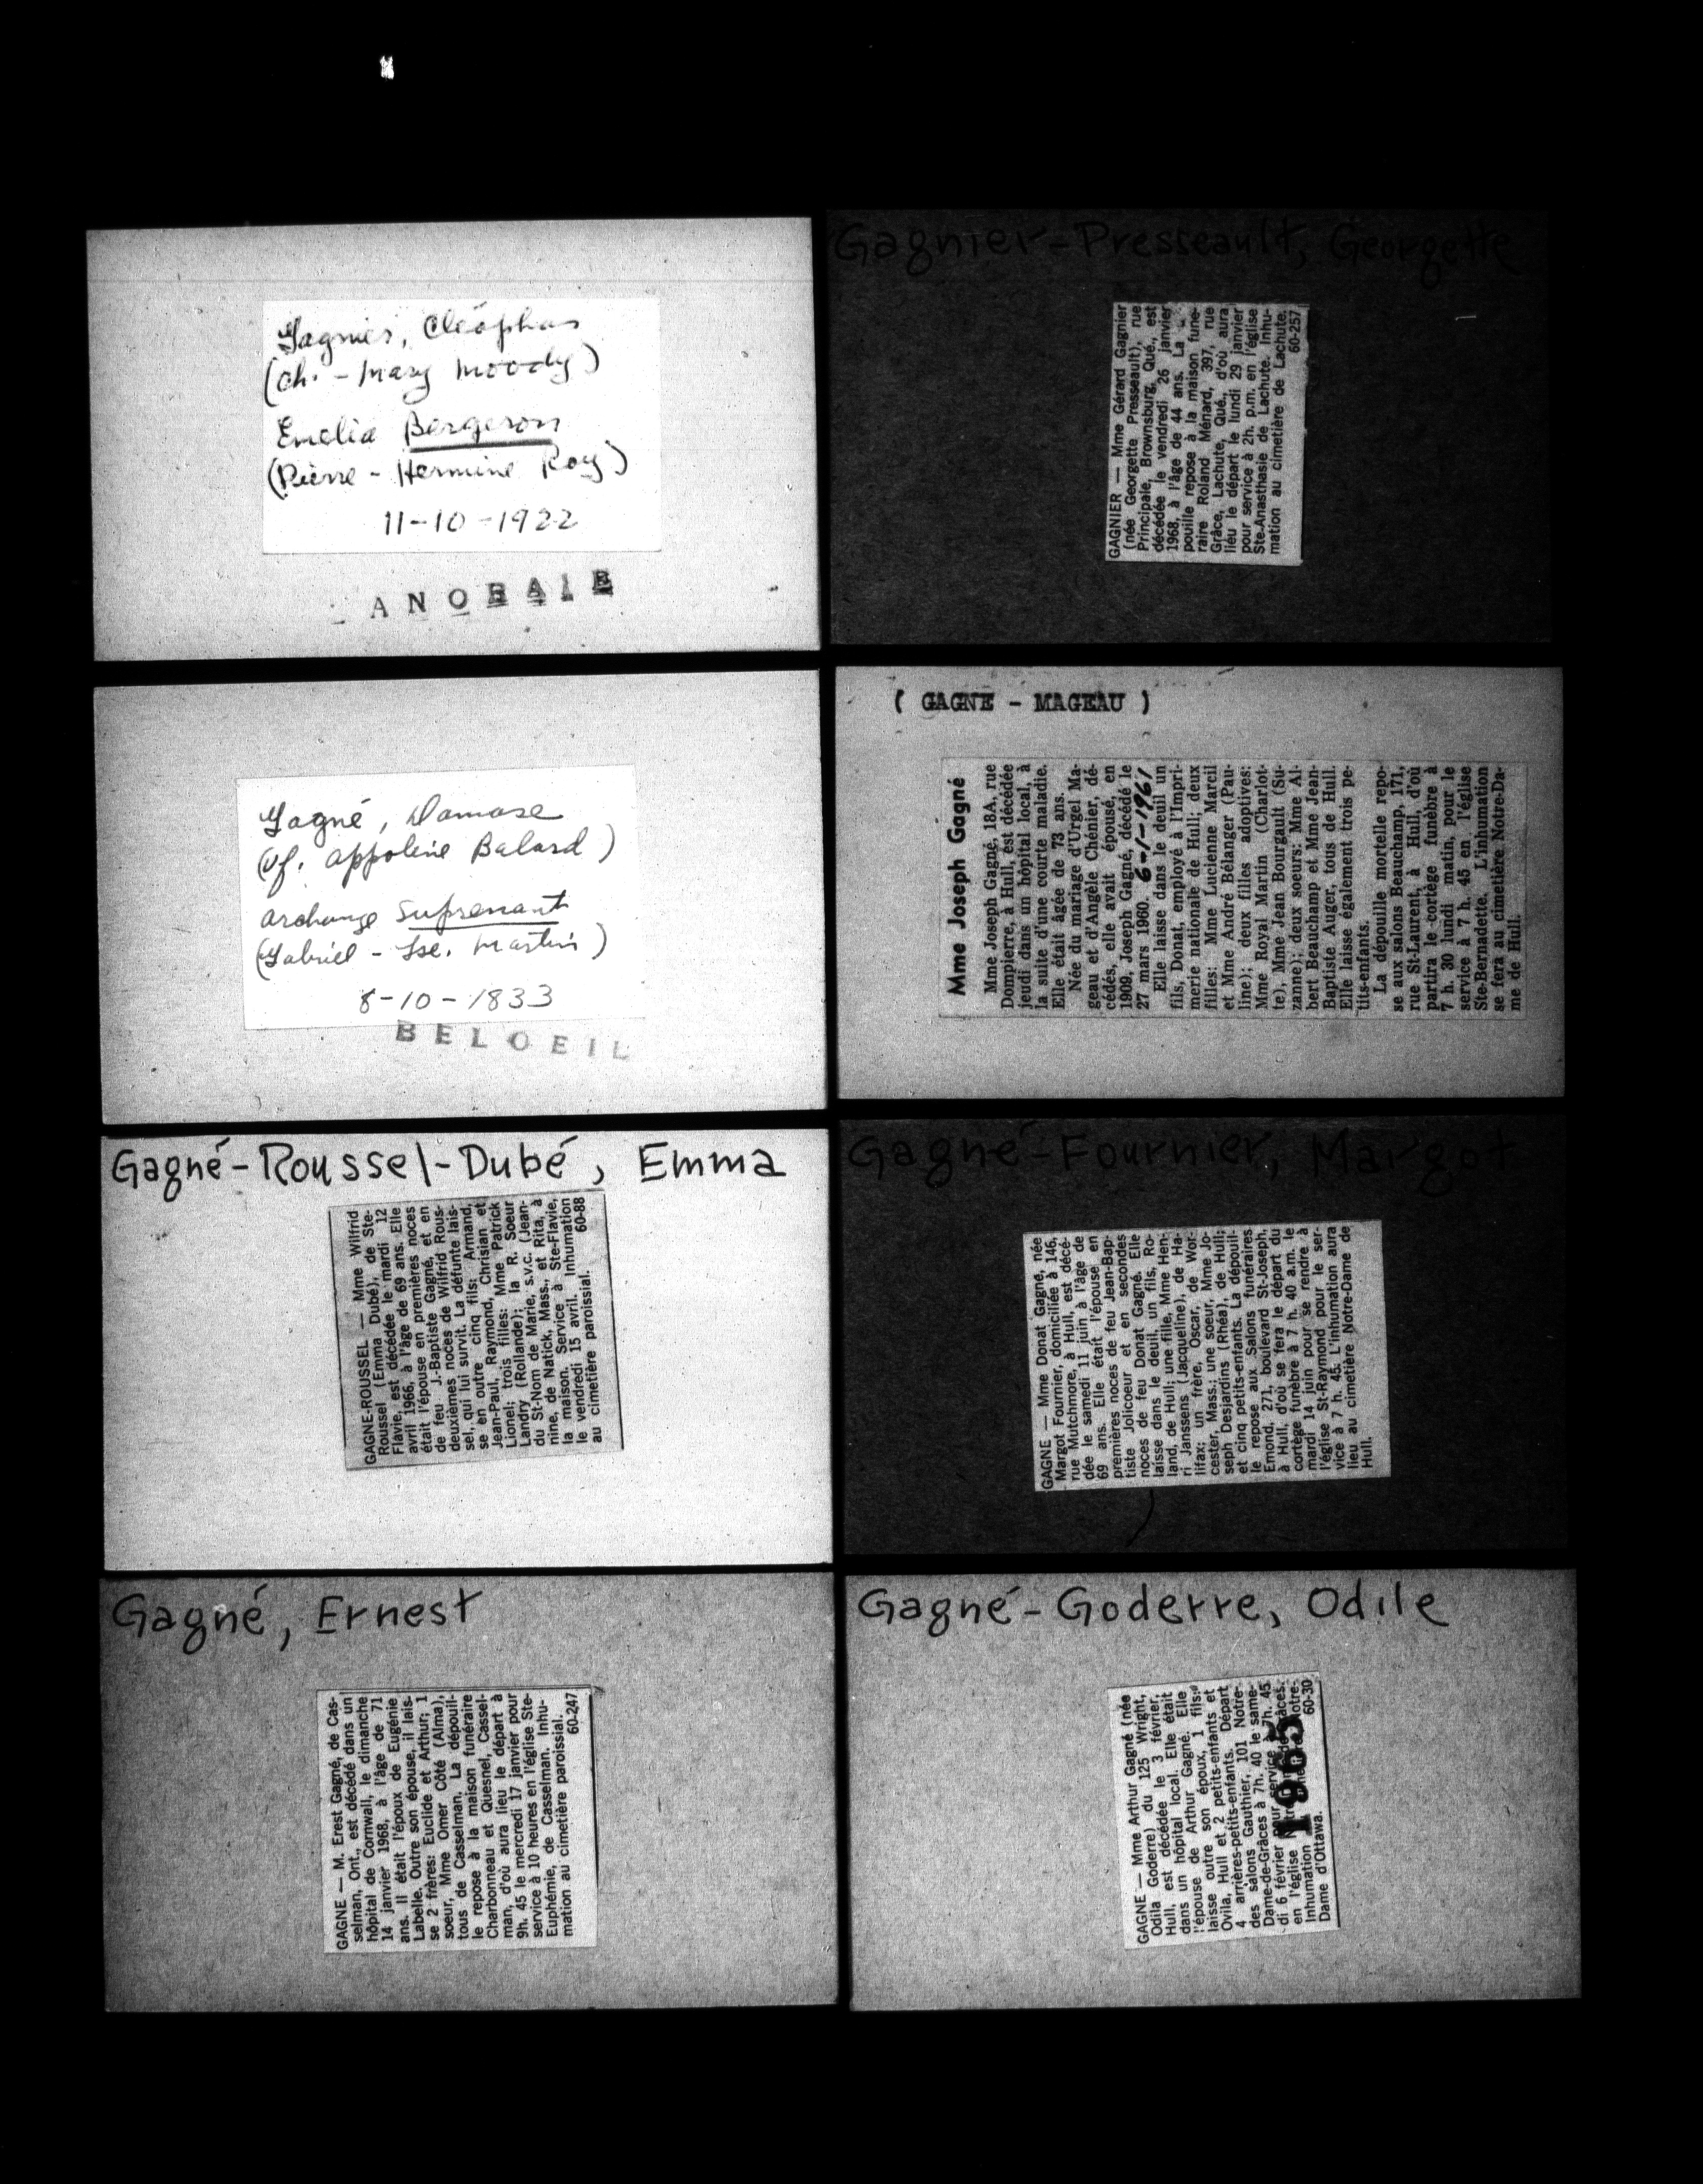 Gagnier, Cléophas
(Ch. - Mary Moody)
Emélia Bergeron
(Pierre - Hermine Roy)
11-10-1922
Gagnier-Presseault, Georgette
GAGNIER — Mme Gérard Gagnier
(née Georgette Presseault), rue
Principale, Brownsburg, Qué., est
décédée le vendredi 26 janvier
1968, à l'âge de 44 ans. La
pouille repose à la maison funé-
raire Roland Ménard, 397, rue
Grâce, Lachute, Qué., d'où aura
lieu le départ le lundi 29 janvier
pour service à 2h. p.m. en l'église
Ste-Anasthasie de Lachute. Inhu-
mation au cimetière de Lachute.
60-257
Gagné, Damase
(vf. Appoline Balard)
Archange Suprenant
(Gabriel - Jse. Martin)
8-10-1833
BELOEIL
( GAGNE - MAGEAU )
Mme Joseph Gagné
Mme Joseph Gagné, 18A, rue
Dompierre, à Hull, est décédée
jeudi dans un hôpital local, à
la suite d'une courte maladie.
Elle était âgée de 73 ans.
Née du mariage d'Urgel Ma-
geau et d'Angèle Chénier, dé-
cédés, elle avait épousé, en
1909, Joseph Gagné, décédé le
27 mars 1960. 6-1-1961
Elle laisse dans le deuil un
fils, Donat, employé à l'Impri-
merie nationale de Hull; deux
filles: Mme Lucienne Marcil
et Mme André Bélanger (Pau-
line); deux filles adoptives:
Mme Royal Martin (Charlot-
te), Mme Jean Bourgault (Su-
zanne); deux soeurs: Mme Al-
bert Beauchamp et Mme Jean-
Baptiste Auger, tous de Hull.
Elle laisse également trois pe-
tits-enfants.
La dépouille mortelle repo-
se aux salons Beauchamp, 171,
rue St-Laurent, à Hull, d'où
partira le cortège funèbre à
7 h. 30 lundi matin, pour le
service à 7 h. 45 en l'église
Ste-Bernadette. L'inhumation
se fera au cimetière Notre-Da-
me de Hull.
Gagné-Roussel-Dubé, Emma
GAGNE-ROUSSEL — Mme Wilfrid
Roussel (Emma Dubé), de Ste-
Flavie, est décédée le mardi 12
avril 1966, à l'âge de 69 ans. Elle
était l'épouse en premières noces
de feu J.-Baptiste Gagné, et en
deuxièmes noces de Wilfrid Rous-
sel, qui lui survit. La défunte lais-
se en outre cinq fils: Armand,
Jean-Paul, Raymond, Chrisian et
Lionel; trois filles: Mme Patrick
Landry (Rollande); la R. Soeur
du St-Nom de Marie, s.v.c. (Jean-
nine, de Natick, Mass., et Rita, à
la maison. Service à Ste-Flavie,
le vendredi 15 avril. Inhumation
au cimetière paroissial. 60-88
Gagné-Fournier, Margot
GAGNE — Mme Donat Gagné, née
Margot Fournier, domiciliée à 146,
rue Mutchmore, à Hull, est décé-
dée le samedi 11 juin à l'âge de
69 ans. Elle était l'épouse en
premières noces de feu Jean-Bap-
tiste Jolicoeur et en secondes
noces de feu Donat Gagné. Elle
laisse dans le deuil, un fils, Ro-
land, de Hull; une fille, Mme Hen-
ri Janssens (Jacqueline), de Ha-
lifax; un frère, Oscar, de Wor-
cester, Mass.; une soeur, Mme Jo-
seph Desjardins (Rhéa), de Hull;
et cinq petits-enfants. La dépouil-
le repose aux Salons funéraires
Emond, 271, boulevard St-Joseph,
à Hull, d'où se fera le départ du
cortège funèbre à 7 h. 40 a.m. le
mardi 14 juin pour se rendre à
l'église St-Raymond pour le ser-
vice à 7 h. 45. L'inhumation aura
lieu au cimetière Notre-Dame de
Hull.
Gagné, Ernest
GAGNE — M. Erest Gagné, de Cas-
selman, Ont., est décédé dans un
hôpital de Cornwall, le dimanche
14 janvier 1968, à l'âge de 71
ans. Il était l'époux de Eugénie
Labelle. Outre son épouse, il lais-
se 2 frères: Euclide et Arthur; 1
soeur, Mme Omer Côté (Alma),
tous de Casselman. La dépouil-
le repose à la maison funéraire
Charbonneau et Quesnel, Cassel-
man, d'où aura lieu le départ à
9h. 45 le mercredi 17 janvier pour
service à 10 heures en l'église Ste-
Euphémie, de Casselman. Inhu-
mation au cimetière paroissial.
60-247
Gagné-Goderre, Odile
GAGNE — Mme Arthur Gagné (née
Odila Goderre) du 125 Wright,
Hull, est décédée le 3 février,
dans un hôpital local. Elle était
l'épouse de Arthur Gagné. Elle
laisse outre son époux, 1 fils:
Ovila, Hull et 2 petits-enfants et
4 arrières-petits-enfants. Départ
des salons Gauthier, 101 Notre-
Dame-de-Grâces à 7h. 40 le same-
di 6 février pour service à 7h. 45
en l'église
Inhumation Notre-
Dame d'Ottawa. 60-30
1965